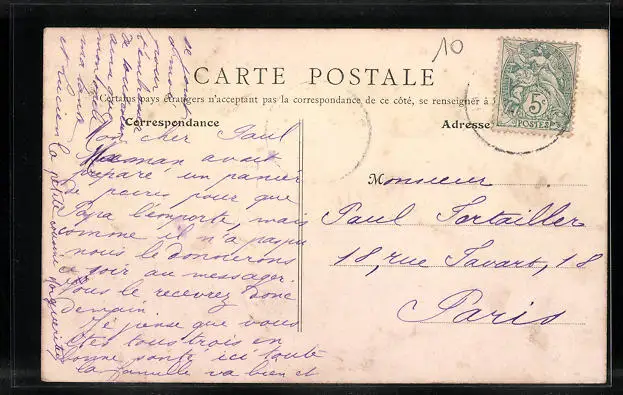 10
CARTE POSTALE
Certains pays étrangers n'acceptant pas la correspondance de ce côté, se renseigner à
Correspondance
Adresse
5c
POSTES
Mon cher Paul
Maman avait
préparé un panier
de poires pour que
Papa l'emporte, mais
comme il n'a pas pu
nous le donnerons
ce soir au messager.
Vous le recevrez donc
demain.
Je pense que vous
êtes tous trois en
bonne santé, ici toute
la famille va bien et
se joint
pour
ma tante
et Lucien
la petite cousine Marguerite
Monsieur
Paul Tertailler
18, rue Favart, 18
Paris